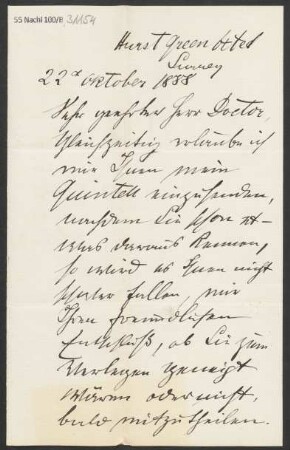 55 Nachl 100/B 31154
Hurst Green Oxted
Surrey
22d Oktober 1888
Sehr geehrter Herr Doctor,
Gleichzeitig erlaube ich
mir Ihnen mein
Quintett einzusenden,
nachdem Sie schon et-
was daraus kennen,
so wird es Ihnen nicht
schwer fallen, mir
Ihren freundlichen
Entschluß, ob Sie zum
Verlegen geneigt
wären oder nicht,
bald mitzutheilen.